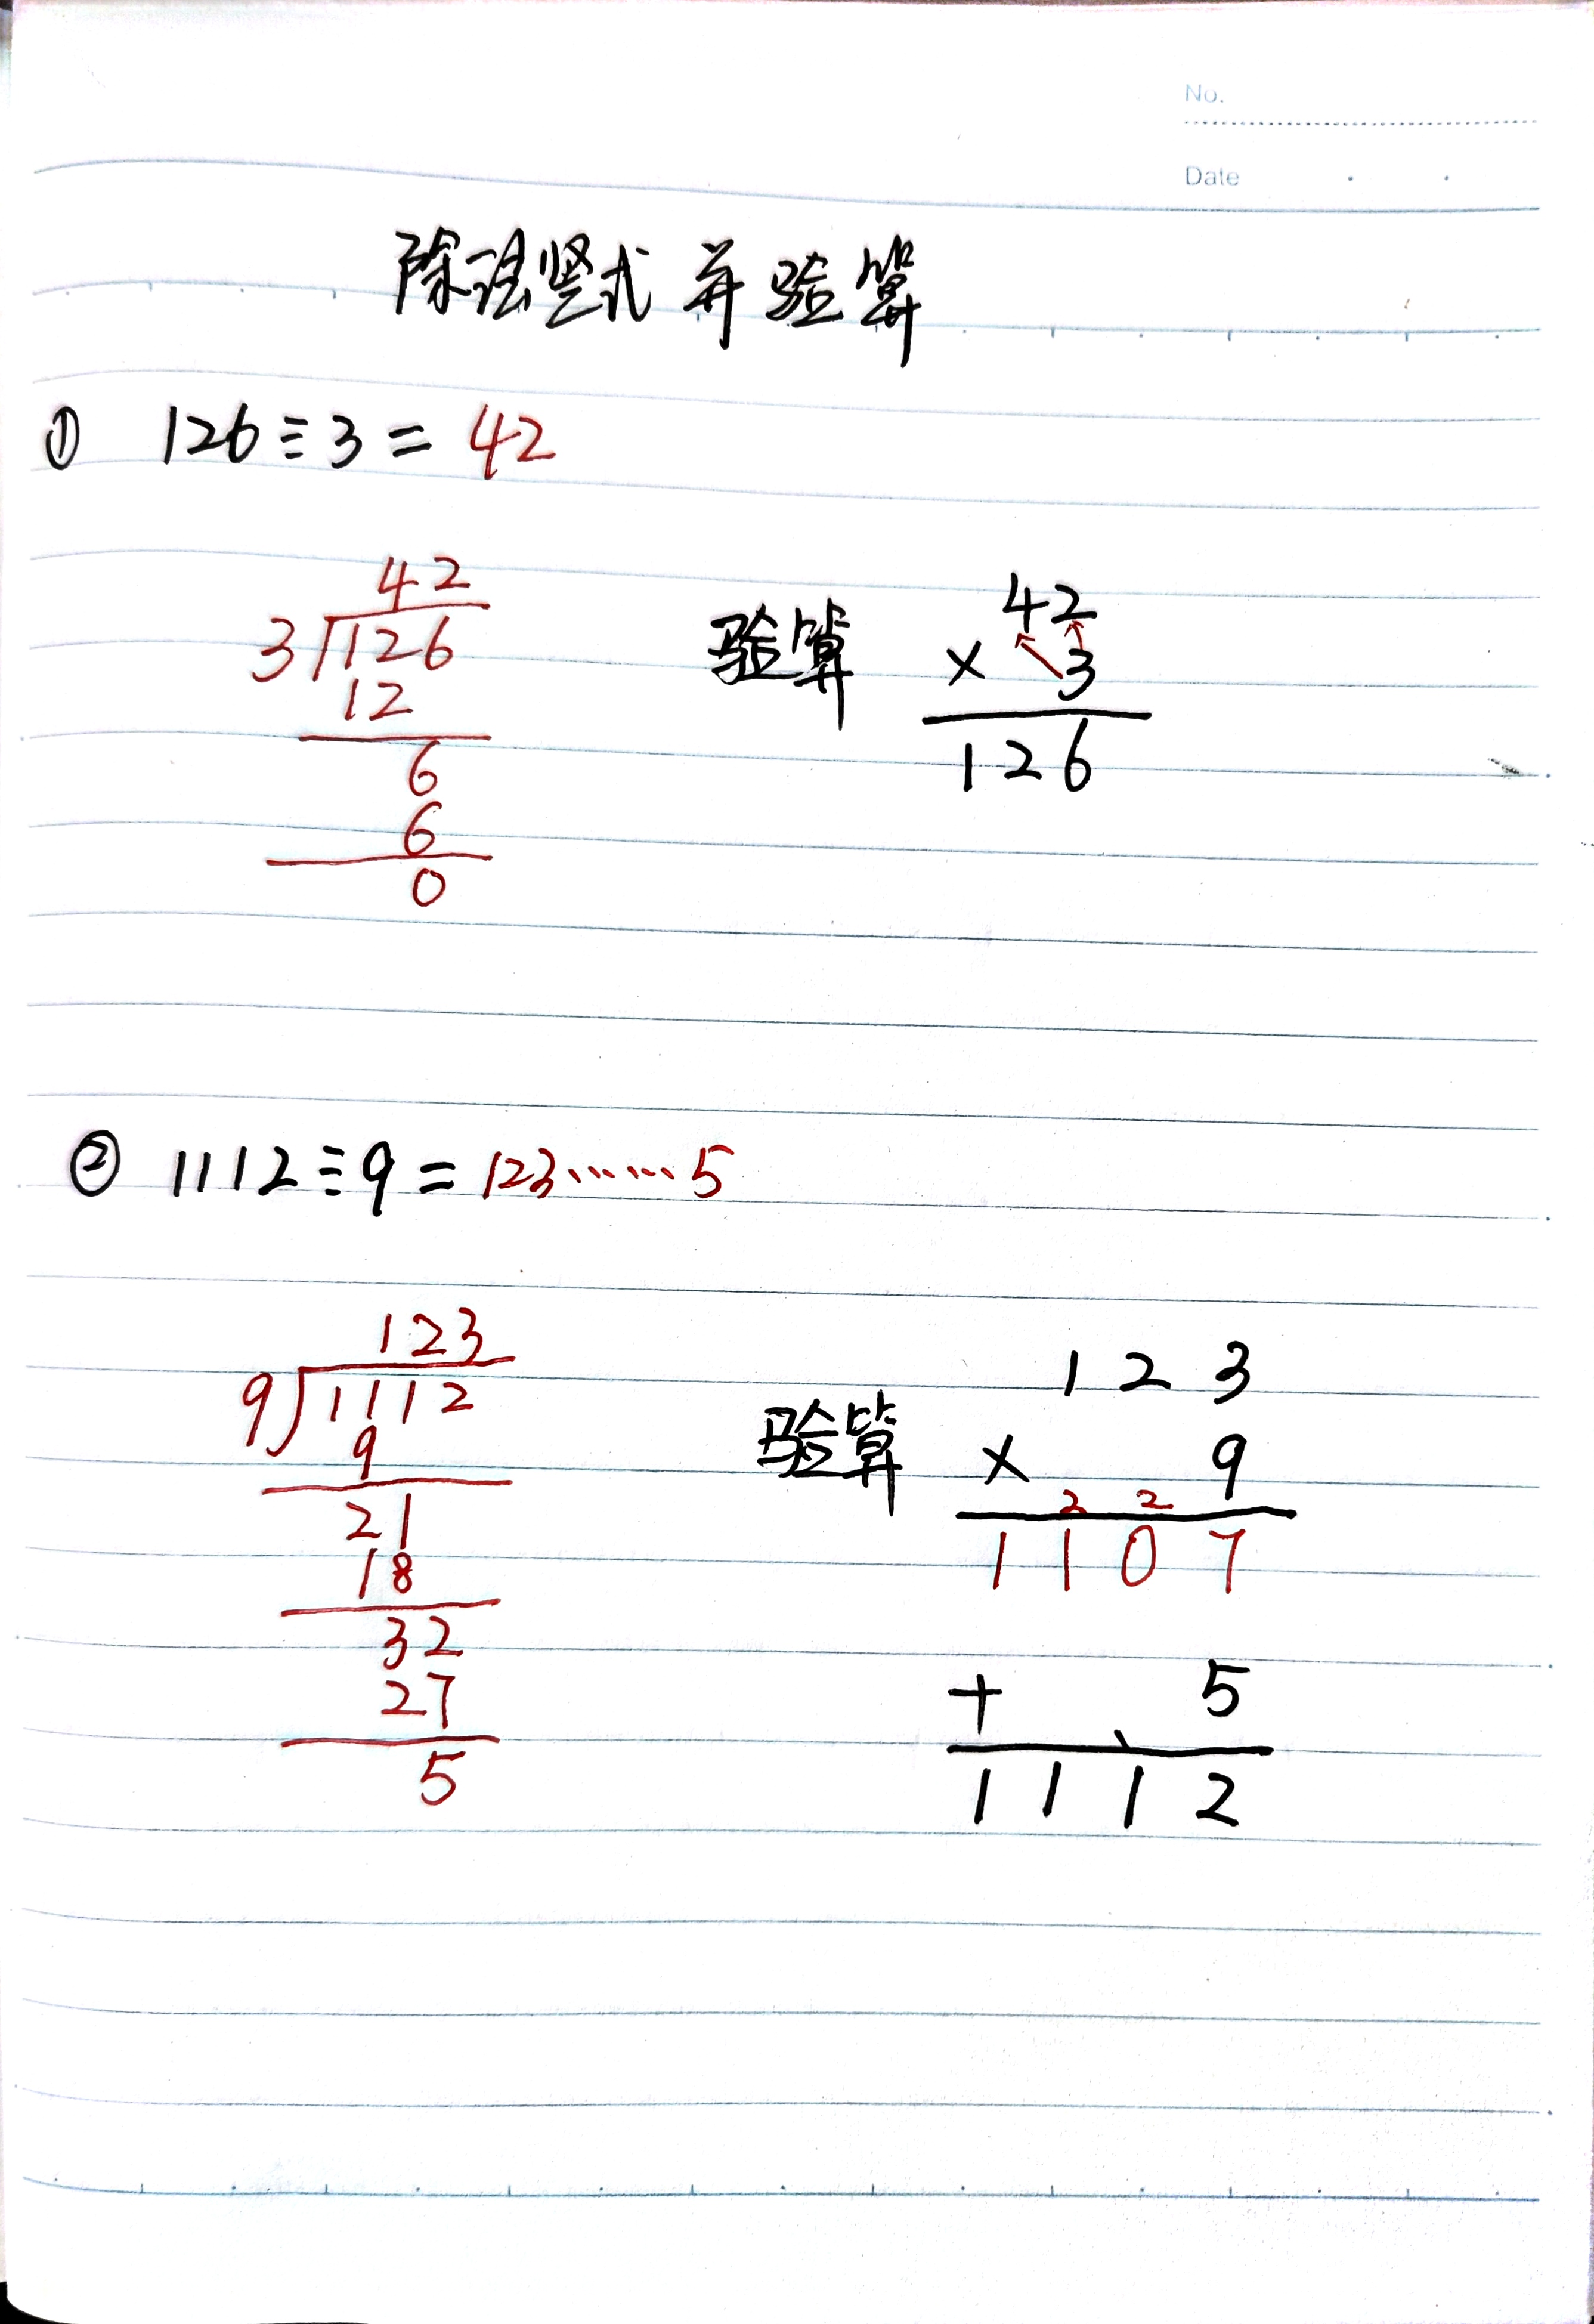 No.
Date
除法竖式并验算
① 126÷3=42
42
3 126
12
6
6
0
验算
42
× 3
126
② 1112÷9=123……5
123
9 1112
9
21
18
32
27
5
验算
1 2 3
× 9
2 2
1 1 0 7
+ 5
1 1 1 2